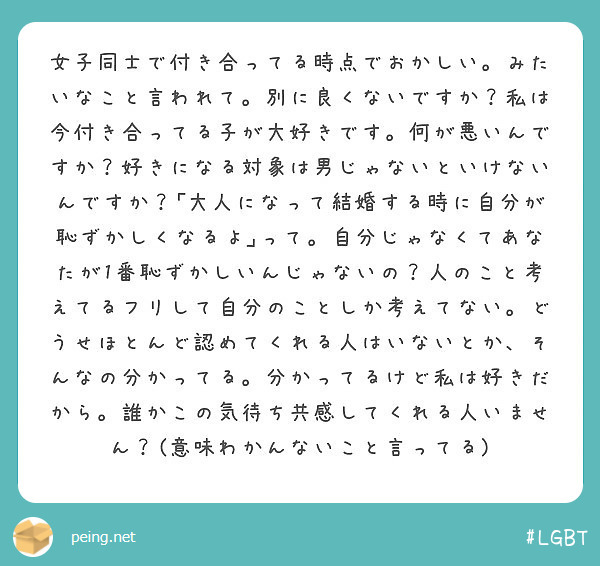 女子同士で付き合ってる時点でおかしい。みた
いなこと言われて。別に良くないですか？私は
今付き合ってる子が大好きです。何が悪いんで
すか？好きになる対象は男じゃないといけない
んですか？「大人になって結婚する時に自分が
恥ずかしくなるよ」って。自分じゃなくてあな
たが1番恥ずかしいんじゃないの？人のこと考
えてるフリして自分のことしか考えてない。ど
うせほとんど認めてくれる人はいないとか、そ
んなの分かってる。分かってるけど私は好きだ
から。誰かこの気待ち共感してくれる人いませ
ん？(意味わかんないこと言ってる)
peing.net
#LGBT